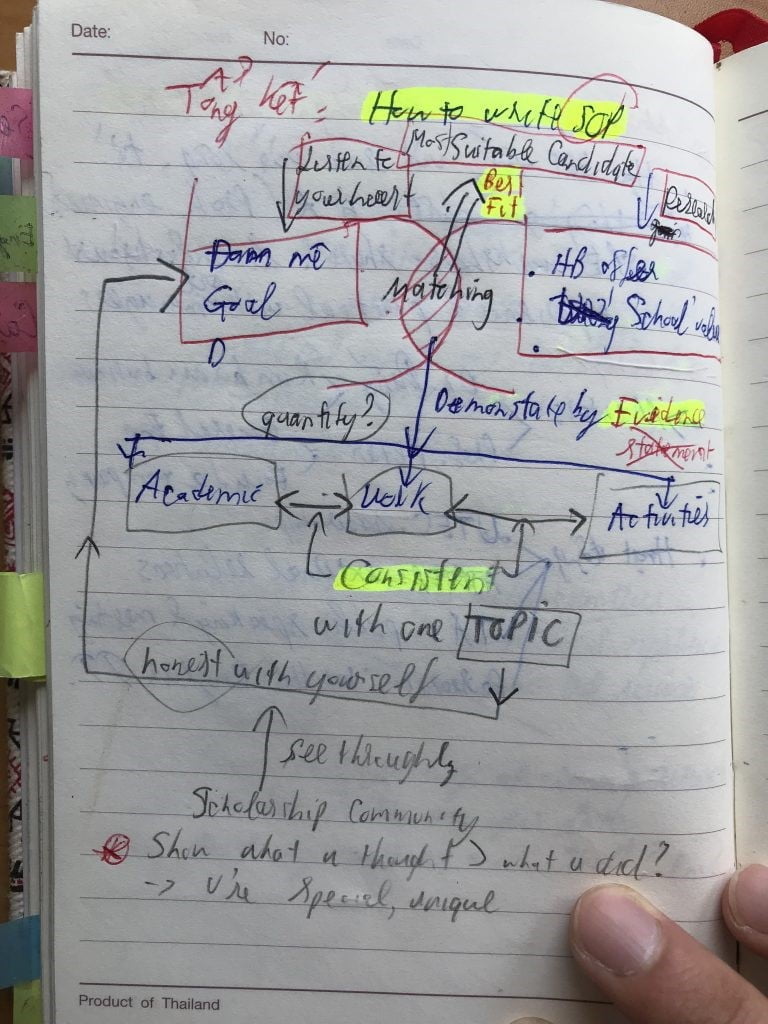 Date: No:
Tổng kết: How to write SOP
Most Suitable Candidate
Listen to
your heart
Best
Fit
Research
Đam mê
Goal
D
Matching
HB offer
School' value
quantify?
Demonstate by Evidence
statement
Academic
Work
Activities
Consistent
with one TOPIC
honest with yourself
see throughly
Scholarship Community
Show what u thought > what u did?
-> U're special, unique
Product of Thailand